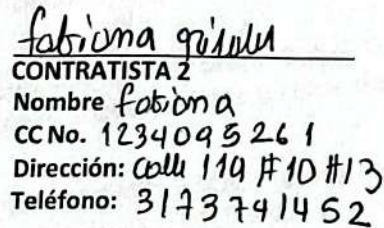 fabiona
CONTRATISTA 2
Nombre fabiona
CC No. 1234095261
Dirección: Calle 119 #10 #13
Teléfono: 3173741452